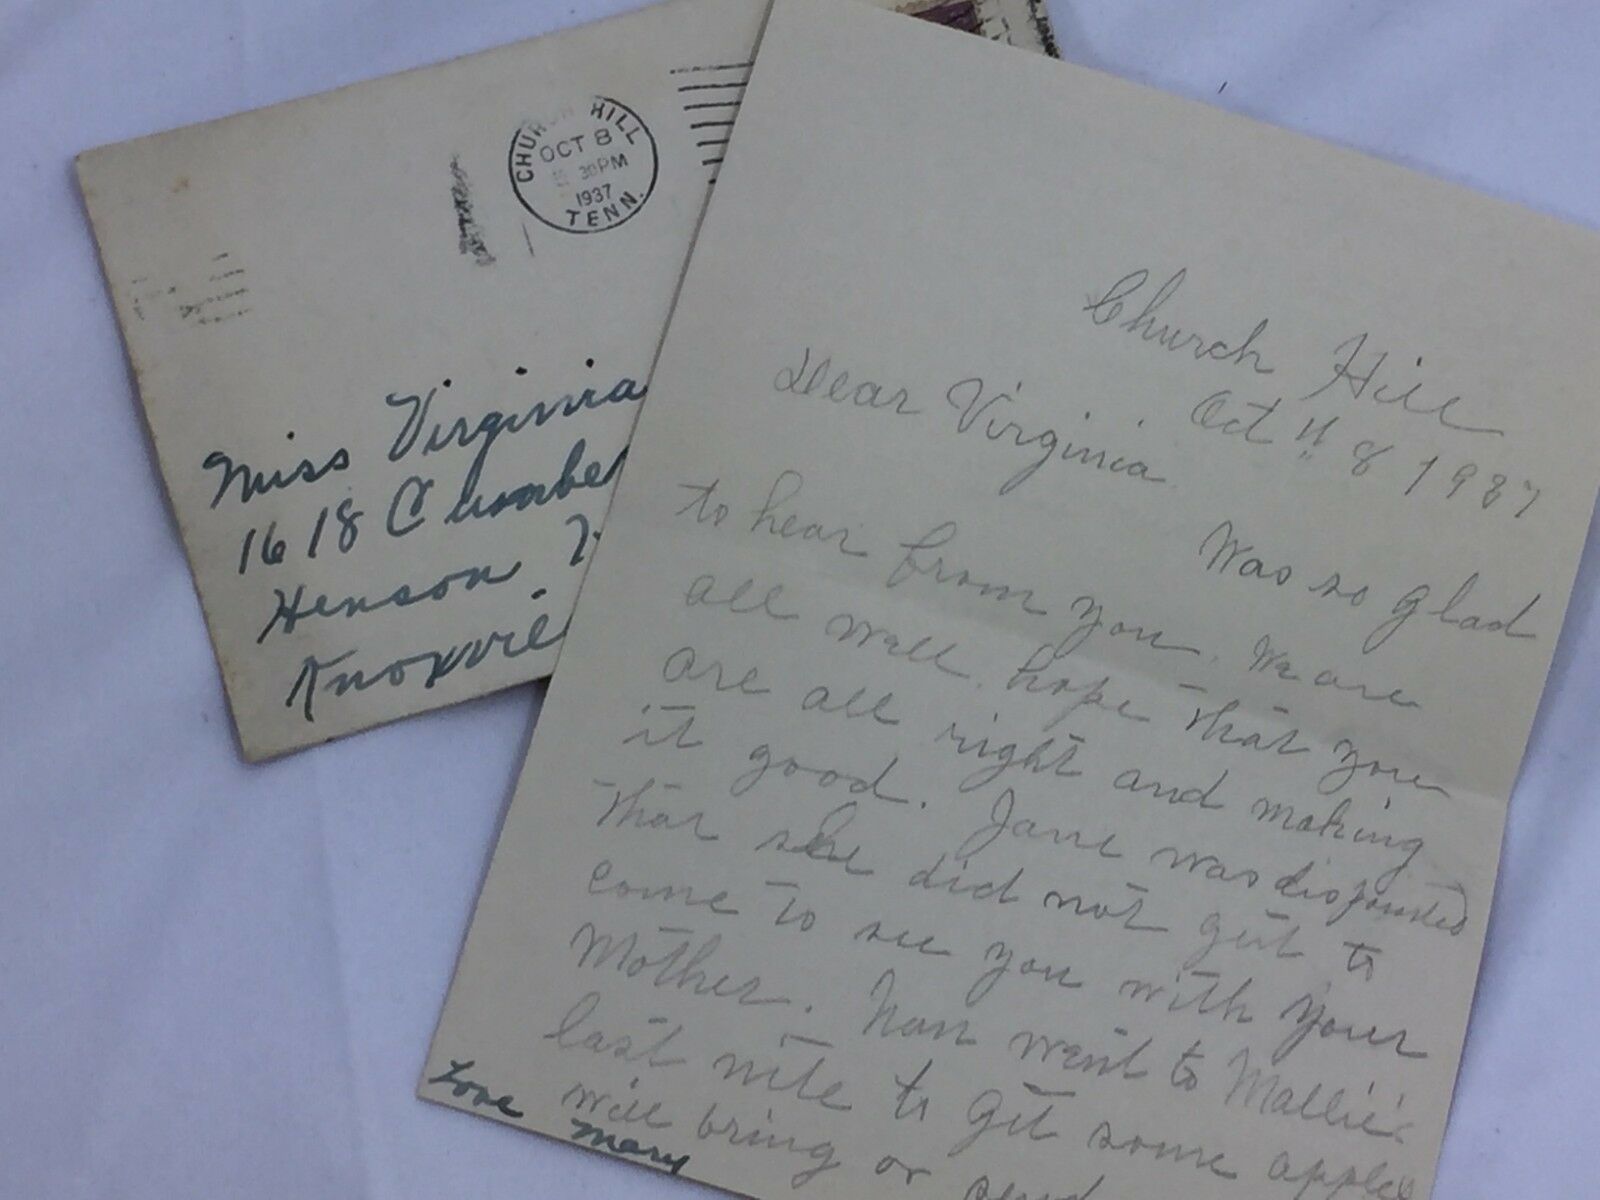 CHURCH HILL
OCT 8
30PM
1937
TENN.
Miss Virginia
1618 Cumber
Henson
Knoxvil
Church Hill
Oct 8 1937
Dear Virginia
Was so glad
to hear from you. We are
all well. hope that you
are all right and making
it good. Jane was disponted
that she did not get to
come to see you with your
Mother. Nan went to Mallie's
last nite to get some apples
will bring or send
Love
Mary